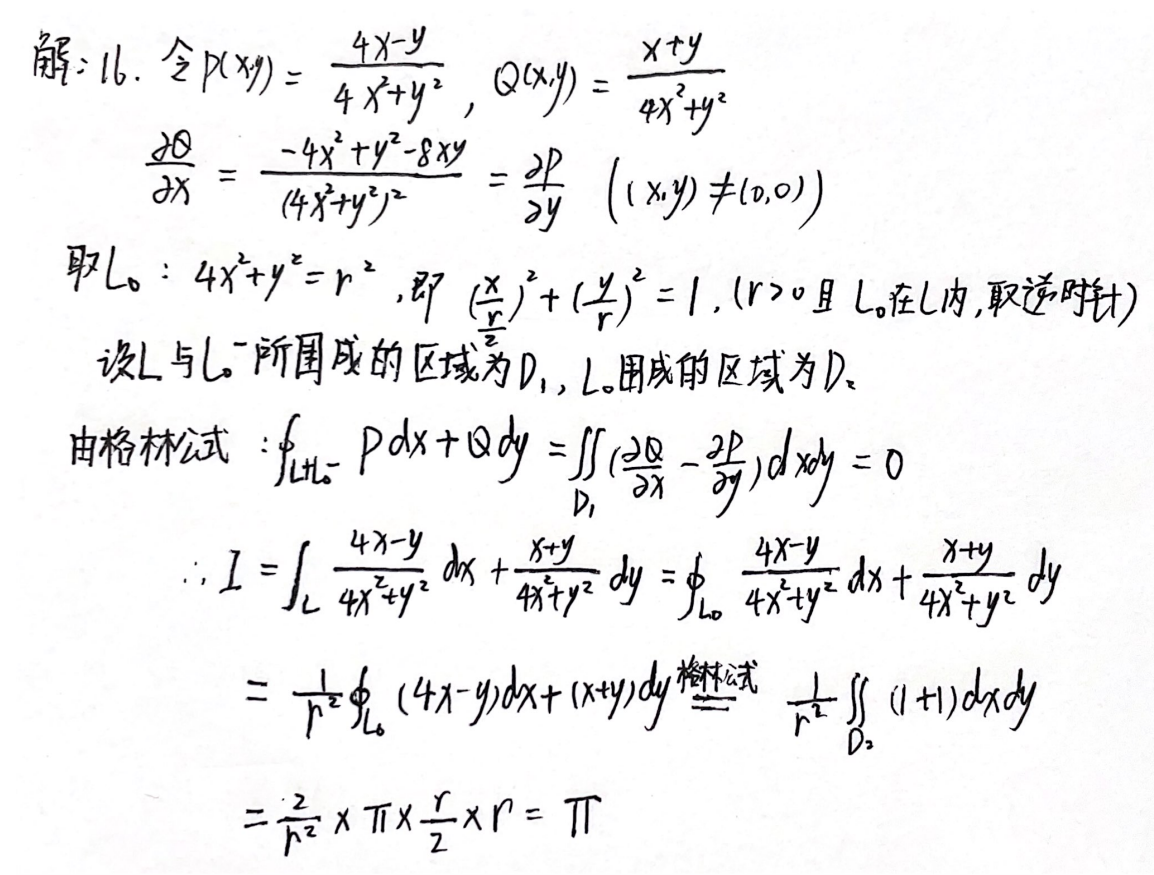 解：16. 令 P(x,y) = \frac{4x-y}{4x^2+y^2}, Q(x,y) = \frac{x+y}{4x^2+y^2}
\frac{∂Q}{∂x} = \frac{-4x^2+y^2-8xy}{(4x^2+y^2)^2} = \frac{∂P}{∂y} ((x,y)≠(0,0))
取L_0：4x^2+y^2=r^2, 即 (\frac{x}{\frac{r}{2}})^2+(\frac{y}{r})^2=1. (r>0且 L_0在L内,取逆时针)
设L与L_0^-所围成的区域为D_1, L_0围成的区域为D_2
由格林公式：∮_{L+L_0^-} Pdx+Qdy = ∬_{D_1} (\frac{∂Q}{∂x} - \frac{∂P}{∂y})dxdy = 0
∴ I = ∫_L \frac{4x-y}{4x^2+y^2} dx + \frac{x+y}{4x^2+y^2} dy = ∮_{L_0} \frac{4x-y}{4x^2+y^2} dx + \frac{x+y}{4x^2+y^2} dy
= \frac{1}{r^2} ∮_{L_0} (4x-y)dx+(x+y)dy \overset{格林公式}{=} \frac{1}{r^2} ∬_{D_2} (1+1)dxdy
= \frac{2}{r^2} × π × \frac{r}{2} × r = π